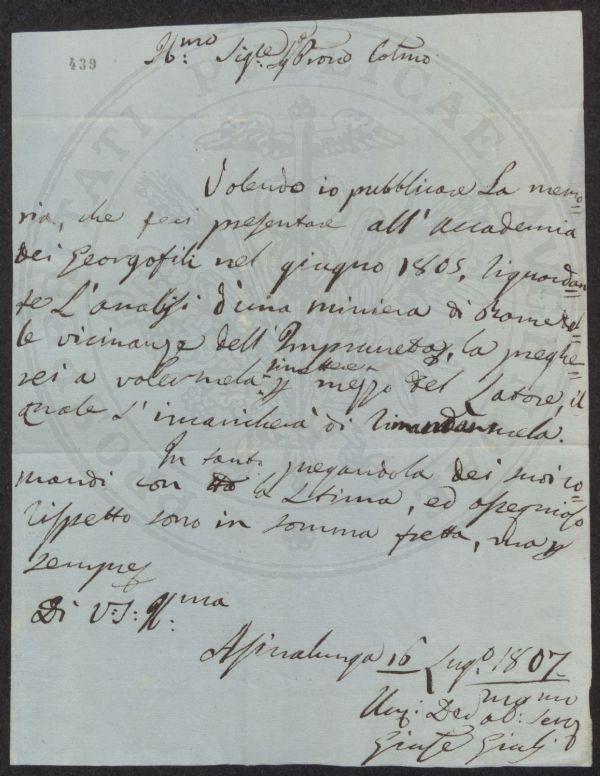 439
Ill:mo Sig:re
Volendo io pubblicare La memo=
ria, che feci presentare all'Accademia
dei Georgofili nel giugno 1805, riguardan=
te L'analisi d'una miniera di Rame del=
le vicinanze dell'Impruneta, la preghe=
rei a volermela rimettere p mezzo del Latore il
quale L'incaricherà di rimandarmela.
In tanto pregandola dei suoi co=
mandi con la Stima, ed ossequioso
rispetto sono in somma fretta, ma p
sempre
Di V:S: Ill:ma
Asinalunga 16 Lug.o 1807.
Um: Dev: ob: Serv
Giuse Giulj
PROSPERITATI PUBLICAE AUGENDAE